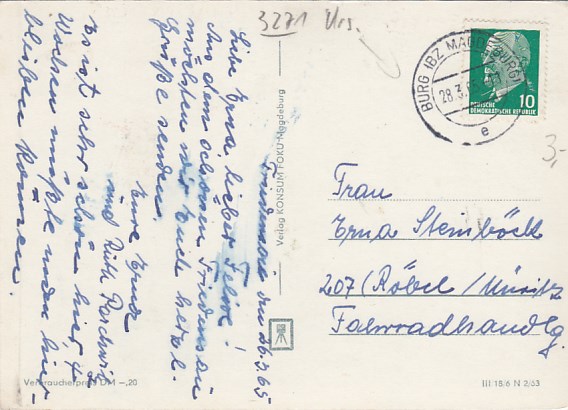 3271 Urs.
Friedensau, den 26.3.65
Liebe Erna, lieber
Aus dem schönen Friedensau
möchten wir Euch herzl.
Grüße senden.
Es ist sehr schön hier, 4
Wochen müßte man hier
bleiben können.
Eure Trude
und Ruth
Verlag KONSUM FOKU Magdeburg
Verbraucherpreis DM -,20
BURG (BZ MAGDEBURG)
28.3.
e
10
DEUTSCHE
DEMOKRATISCHE REPUBLIK
3,-
Frau
Erna Steinböck
207 (Röbel/Müritz
Fahrradhandlg.
III 18/6 N 2/63